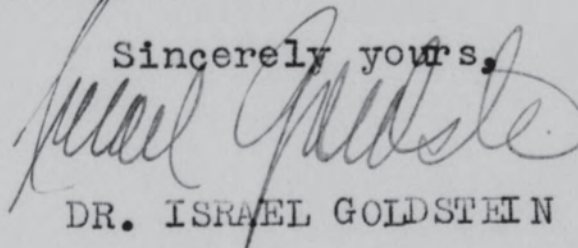 Sincerely yours,
Israel Goldstein
DR. ISRAEL GOLDSTEIN